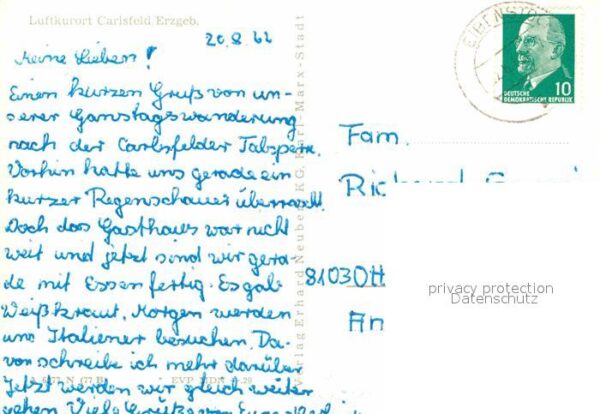 Luftkurort Carlsfeld Erzgeb.
20.8.62
Meine Lieben!
Einen kurzen Gruß von un-
serer Ganstagswanderung
nach der Carlsfelder Talsperre.
Vorhin hatte uns gerade ein
kurzer Regenschauer überrascht.
Doch das Gasthaus war nicht
weit und jetzt sind wir gera-
de mit Essen fertig. Es gab
Weißkraut. Morgen werden
uns Italiener besuchen. Da-
von schreibe ich mehr darüber
Jetzt werden wir gleich weiter
gehen. Viele Grüße von
Verlag Erhard Neubert KG, Karl-Marx-Stadt
EIBENSTOCK
10
DEUTSCHE
DEMOKRATISCHE REPUBLIK
Fam.
8103 Ott
An
privacy protection
Datenschutz